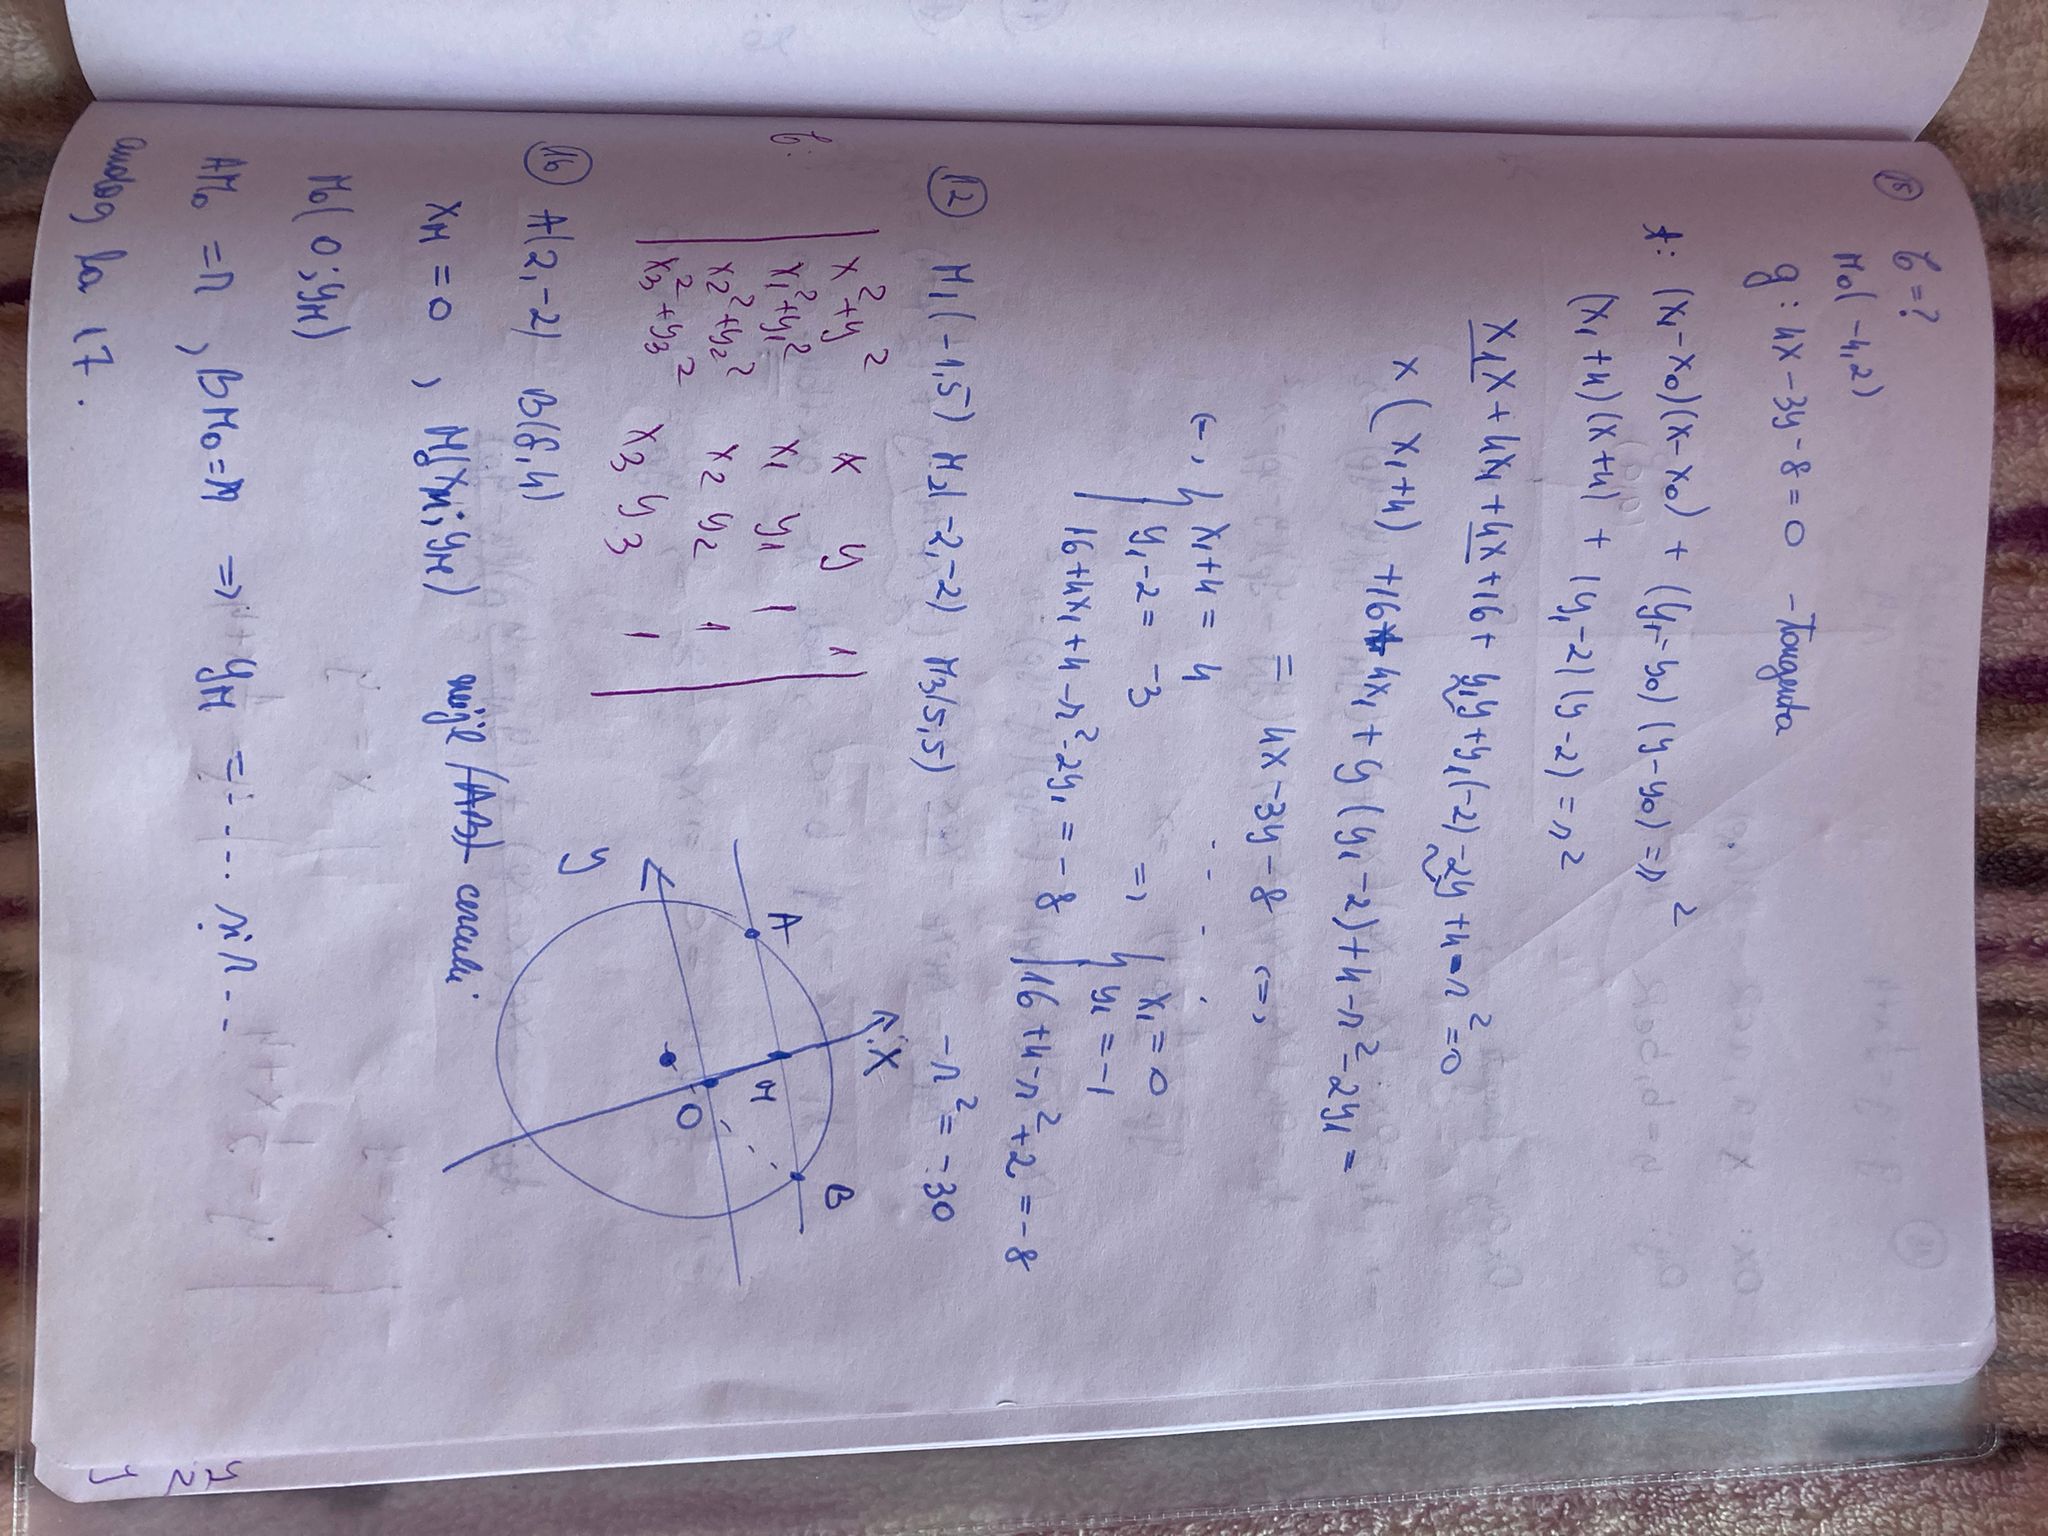 15 C = ?
M₀(-4,2)
g: 4x-3y-8=0 - Tangenta
t: (x₁-x₀)(x-x₀) + (y₁-y₀)(y-y₀) = r²
(x₁+4)(x+4) + (y₁-2)(y-2) = r²
x₁x + 4x₁ + 4x + 16 + y₁y + y₁(-2) - 2y + 4 - r² = 0
x(x₁+4) + 16 + 4x₁ + y(y₁-2) + 4 - r² - 2y₁ =
= 4x-3y-8 <=>
<=> { x₁+4 = 4 - - - .
y₁-2 = -3 => { x₁ = 0
y₁ = -1
16+4x₁+4-r²-2y₁ = -8
16+4-r²+2 = -8
-r² = -30
12 M₁(-1,5) M₂(-2,-2) M₃(5,5)
C:
x²+y² x y 1
x₁²+y₁² x₁ y₁ 1
x₂²+y₂² x₂ y₂ 1
x₃²+y₃² x₃ y₃ 1
x
B
A
M
O
y
16 A(2,-2) B(8,4)
x_M = 0 , M₀(x_M; y_M) mijl (AB) cercului
M₀(0; y_M)
AM₀ = r , BM₀ = r => y_M = - . . . . și r . . .
analog la 17.